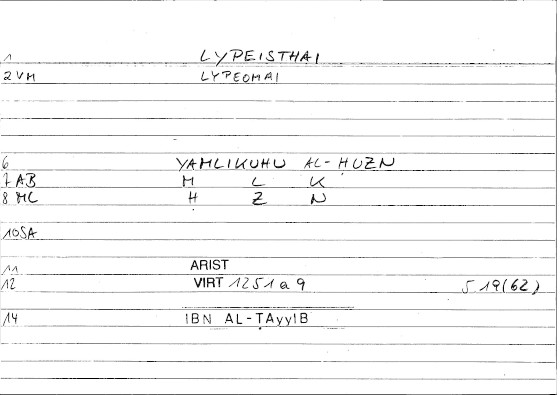 1 LYPEISTHAI
2 VM LYPEOMAI
6 YAMLIKUHU AL-ḤUZN
7 AB M L K
8 ML Ḥ Z N
10 SA
11 ARIST
12 VIRT 1251 a 9 5 19(62)
14 IBN AL-ṬAyyIB